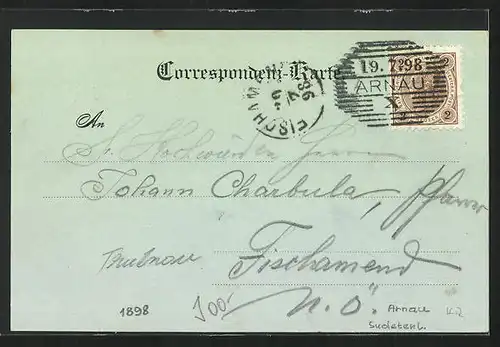 Correspondenz-Karte
19. 7. 98
ARNAU
FISCHAMEND
98
2
2
An
Sr. Hochwürden Herrn
Johann Charbula, Pfarrer
Fischamend
N. Ö.
1898
100.-
Arnau
Sudetenl.
K2